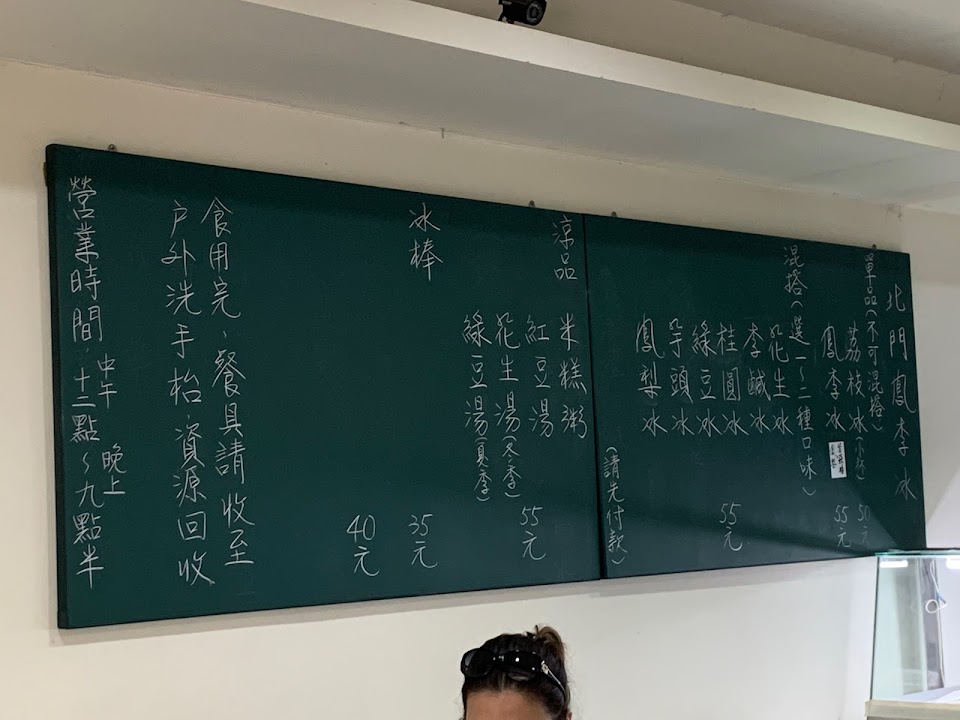 北門鳳李冰
單品(不可混搭)
荔枝冰(小杯) 50元
鳳李冰 55元
混搭(選一~二種口味)
花生冰
李鹹冰
桂圓冰 55元
綠豆冰
芋頭冰
鳳梨冰
(請先付款)
涼品
米糕粥
紅豆湯 55元
花生湯(冬季)
綠豆湯(夏季)
冰棒 35元
40元
食用完、餐具請收至
戶外洗手枱、資源回收
營業時間:中午十二點~晚上九點半